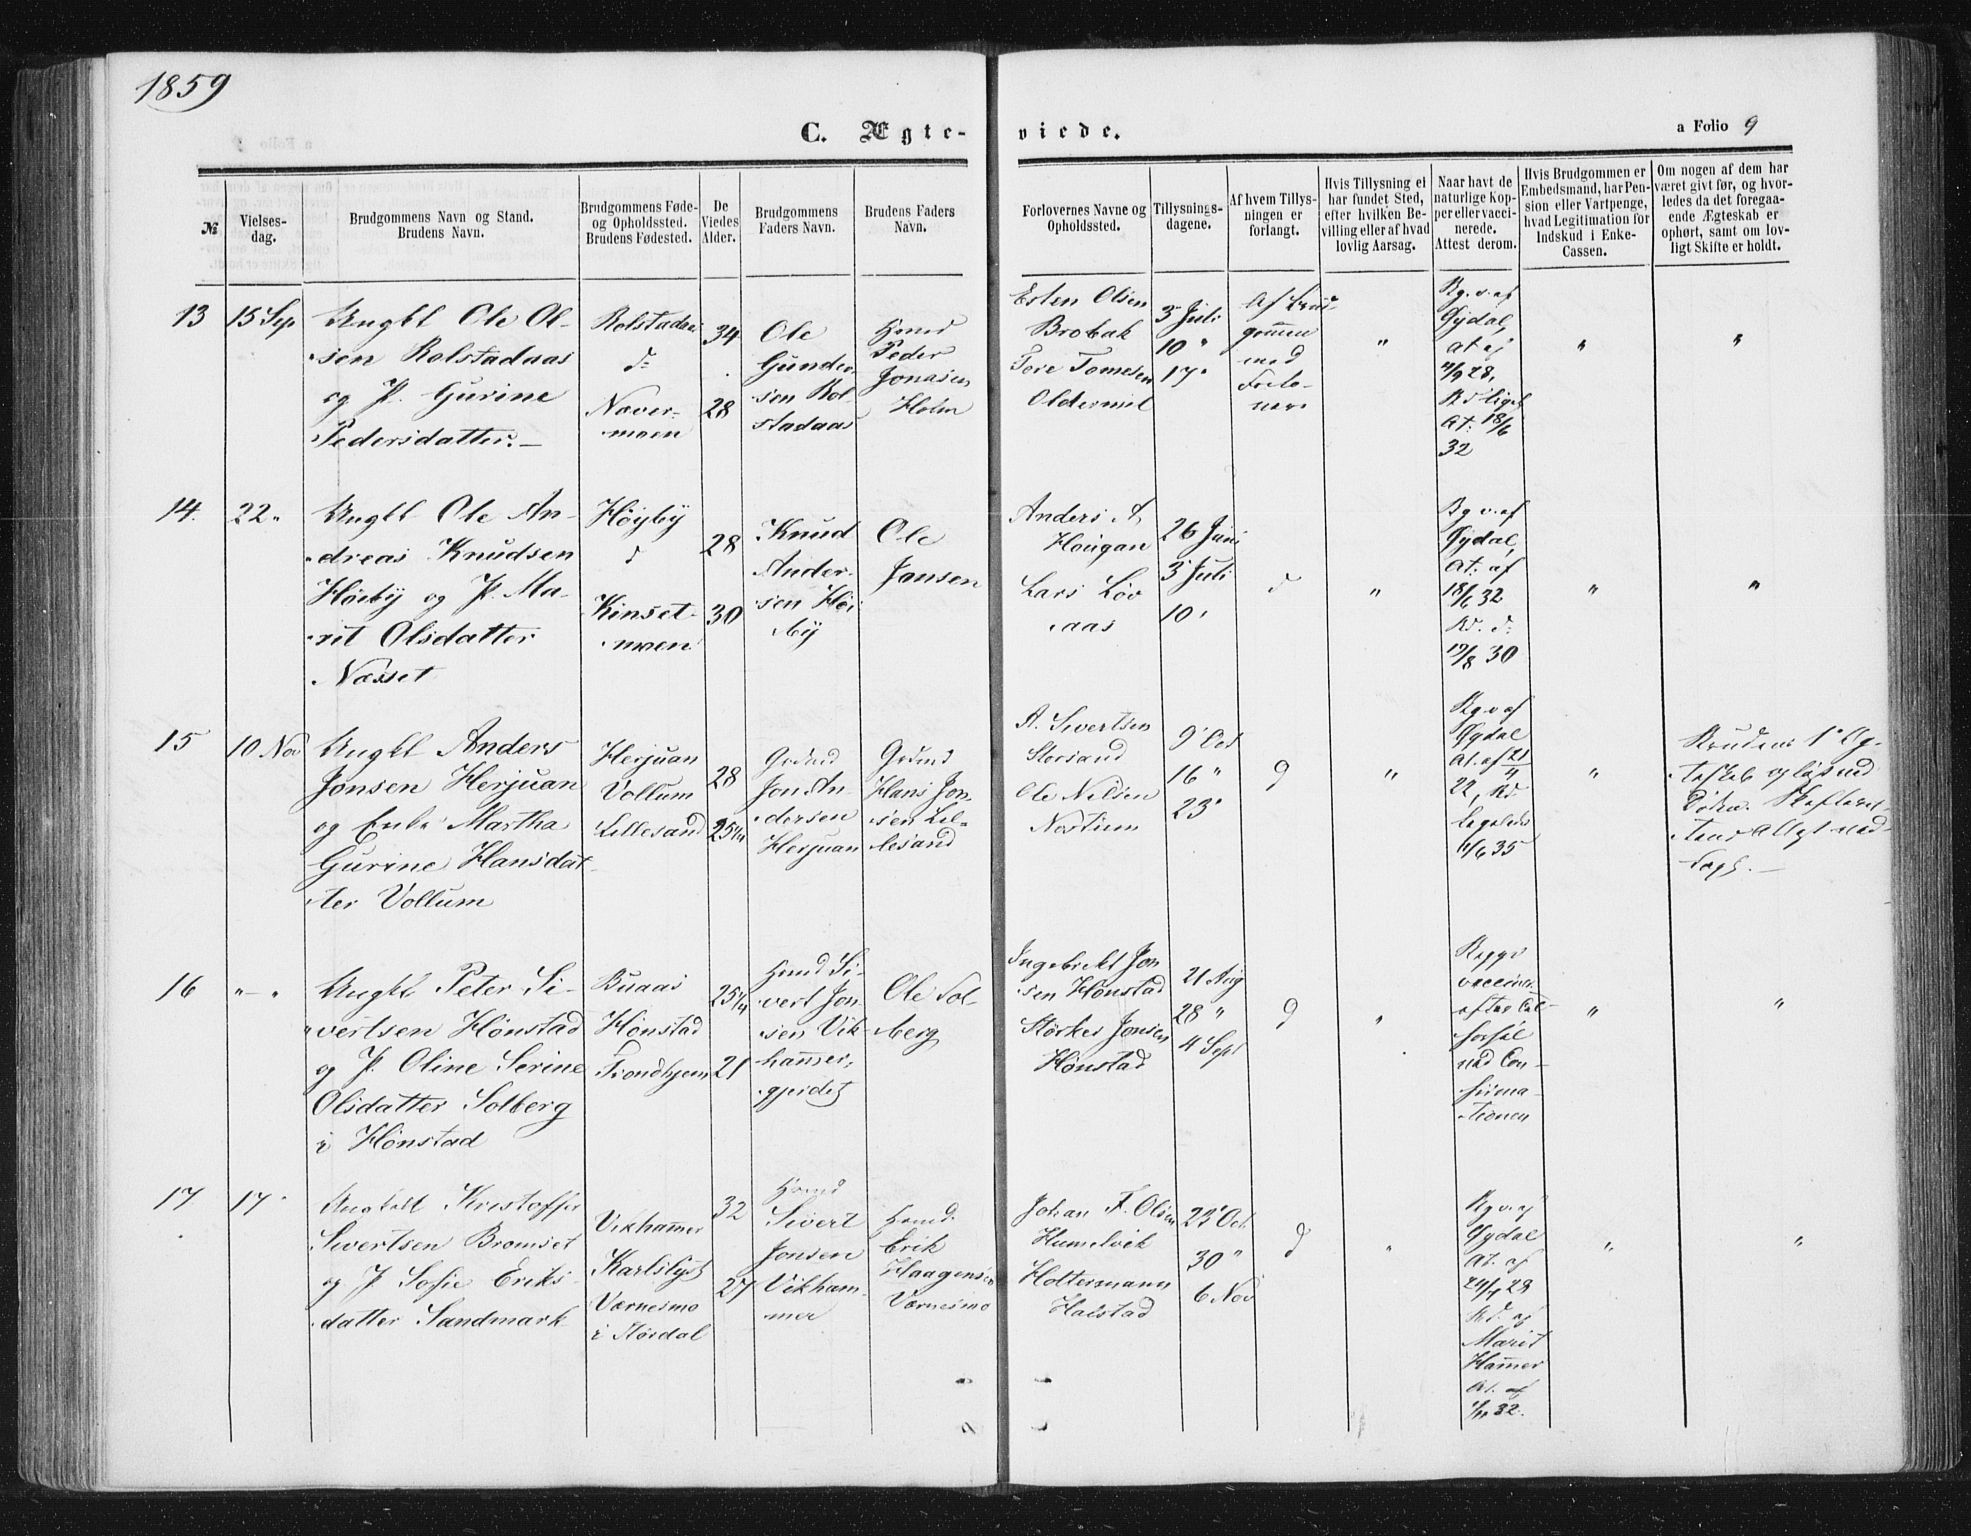 1859
C. Ægteviede.
a Folio 9
№
Vielsesdag.
Brudgommens Navn og Stand.
Brudens Navn.
Brudgommens Føde- og Opholdssted.
Brudens Fødested.
De Viedes Alder.
Brudgommens Faders Navn.
Brudens Faders Navn.
Forlovernes Navne og Opholdssted.
Tillysningsdagene.
Af hvem Tillysningen er forlangt.
Hvis Tillysning ei har fundet Sted, efter hvilken Bevilling eller af hvad lovlig Aarsag.
Naar havt de naturlige Kopper eller vaccinerede. Attest derom.
Hvis Brudgommen er Embedsmand, har Pension eller Vartpenge, hvad Legitimation for Indskud i Enke-Cassen.
Om nogen af dem har været givt før, og hvorledes da det foregaaende Ægteskab er ophørt, samt om lovligt Skifte er holdt.
13
15 Sep
Ungkl Ole Ol-
sen Rolstadaas
og P. Gurine
Pedersdatter.
Rolstadaas
d:
Naver-
moen
34
28
Ole
Gunder-
sen Rol-
stadaas
Hmd
Peder
Jonasen
Holm
Esten Olsen
Brobak
Tore Tomesen
Oldermel
3 Juli
10 "
17 "
Af Brud-
gommen
med
Forlo-
vere
"
Bg. v. af
Gydal,
at af
28,
Bd liges
At: 18/6
32
"
"
14.
22 "
Ungkl Ole An-
dreas Knudsen
Høiby og P. Ma-
rit Olsdatter
Næsset
Høyby
d
Kinset-
moen
28
30
Knud
Ander-
sen Høi-
by
Ole
Jonsen
Anders A.
Hougan
Lars Løv-
aas
26 Juni
3 Juli
10 "
d
"
Bg v. af
Gydal,
at: af
18/6 32
Bd. d:
19/8 30
"
"
15
10 Nov
Ungkl Anders
Jonsen Herjuan
og Enke Martha
Gurine Hansdat-
ter Vollum
Herjuan
Vollum
Lillesand
28
25¼
Grdmd
Jon An-
dersen
Herjuan
Grdmd
Hans Jon-
sen Lil-
lesand
A. Sivertsen
Storsand
Ole Nilsen
Nostuen
9 Oct
16 "
23 "
d
"
Bg v af
Gydal
At. af 21
22, Bd
35
"
Brudens 1ste Æg-
teskab opløst ved
Døden.
16
"—"
Ungkl Peter Si-
vertsen Hønstad
og P. Oline Serine
Olsdatter Solberg
i Hønstad
Buaas
Hønstad
Trondhjem
25¼
21
Hmd Si-
vert Jon-
sen Vik-
hammer-
gjerdet
Ole Sol-
berg
Ingebrikt Jon-
sen Hønstad
Størker Jonsen
Hønstad
21 Aug
28 "
4 Sept
d
"
Begge
vaccinere
efter
ved Con-
firma-
tionen
"
"
17
17 "
Ungkl Kristoffer
Sivertsen Bromset
og P Sofie Eriks-
datter Sandmark
Vikhammer
Karlslyst
Værnesmo
i Størdal
32
27
Hmd
Sivert
Jonsen
Vikham-
mer
Hmd.
Erik
Haagensen
Værnesmo
Johan F. Olsen
Humelvik
Holtermann
Halstad
23 Oct
30 "
6 Nov
d
"
Bg v. af
Gydal
At. af
28
Bd. af
Marit
Hammer
At. af
32.
"
"